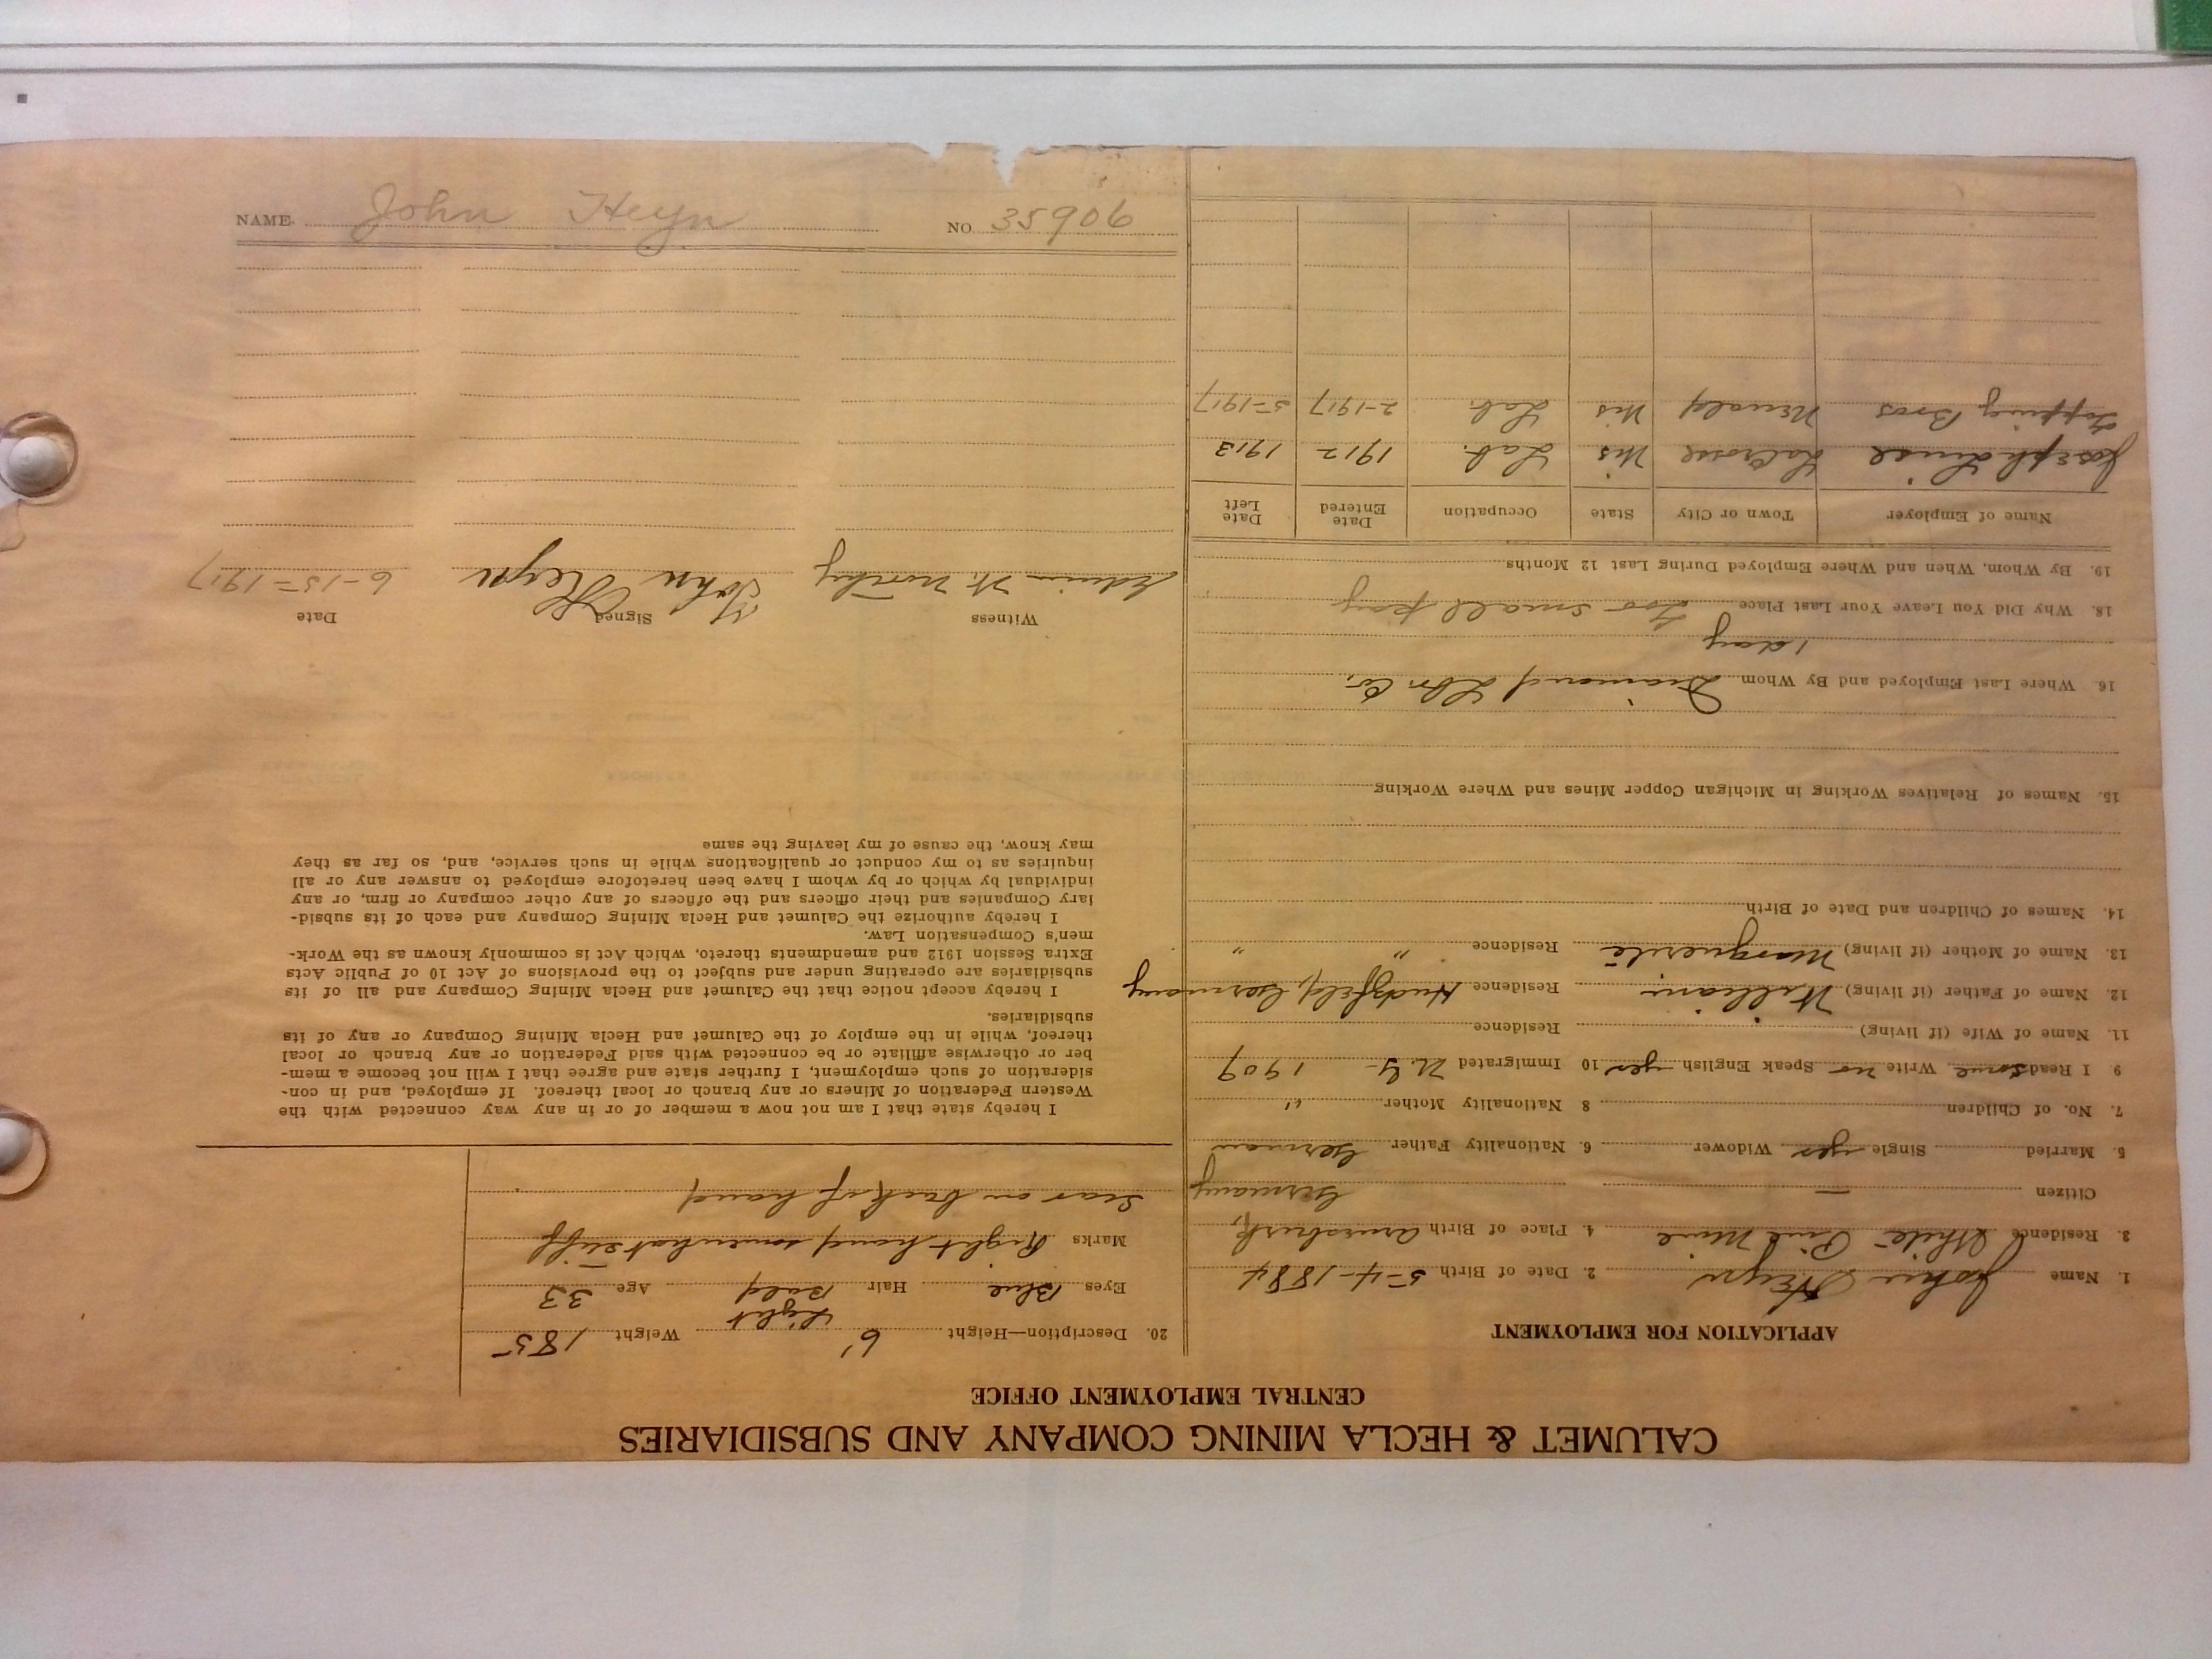 CALUMET & HECLA MINING COMPANY AND SUBSIDIARIES
CENTRAL EMPLOYMENT OFFICE
APPLICATION FOR EMPLOYMENT
1. Name John Heyn 2. Date of Birth 5-4-1884
3. Residence White Pine Mine 4. Place of Birth
Citizen — Germany
5. Married Single yes Widower 6. Nationality Father German
7. No. of Children 8 Nationality Mother "
9 I Read some Write no Speak English yes 10 Immigrated N.Y- 1909
11. Name of Wife (if living) Residence
12. Name of Father (if living) William Residence Germany
13. Name of Mother (if living) Marguerite Residence " "
14. Names of Children and Date of Birth
15. Names of Relatives Working in Michigan Copper Mines and Where Working
16. Where Last Employed and By Whom Diamond Lbr. Co.
1 day
18. Why Did You Leave Your Last Place Too small pay
19. By Whom, When and Where Employed During Last 12 Months
Name of Employer Town or City State Occupation Date Entered Date Left
Joseph LaCrosse Wis Lab. 1912 1913
Topping Bros Newald Wis Lab. 2-1917 5-1917
20. Description—Height 6' Weight 185
Light
Eyes Blue Hair Bald Age 33
Marks Right hand somewhat stiff
Scar on back of hand
I hereby state that I am not now a member of or in any way connected with the
Western Federation of Miners or any branch or local thereof. If employed, and in con-
sideration of such employment, I further state and agree that I will not become a mem-
ber or otherwise affiliate or be connected with said Federation or any branch or local
thereof, while in the employ of the Calumet and Hecla Mining Company or any of its
subsidiaries.
I hereby accept notice that the Calumet and Hecla Mining Company and all of its
subsidiaries are operating under and subject to the provisions of Act 10 of Public Acts
Extra Session 1912 and amendments thereto, which Act is commonly known as the Work-
men's Compensation Law.
I hereby authorize the Calumet and Hecla Mining Company and each of its subsid-
iary Companies and their officers and the officers of any other company or firm, or any
individual by which or by whom I have been heretofore employed to answer any or all
inquiries as to my conduct or qualifications while in such service, and, so far as they
may know, the cause of my leaving the same
Witness Signed Date
Edwin W. John Heyn 6-15-1917
NAME John Heyn NO 35906